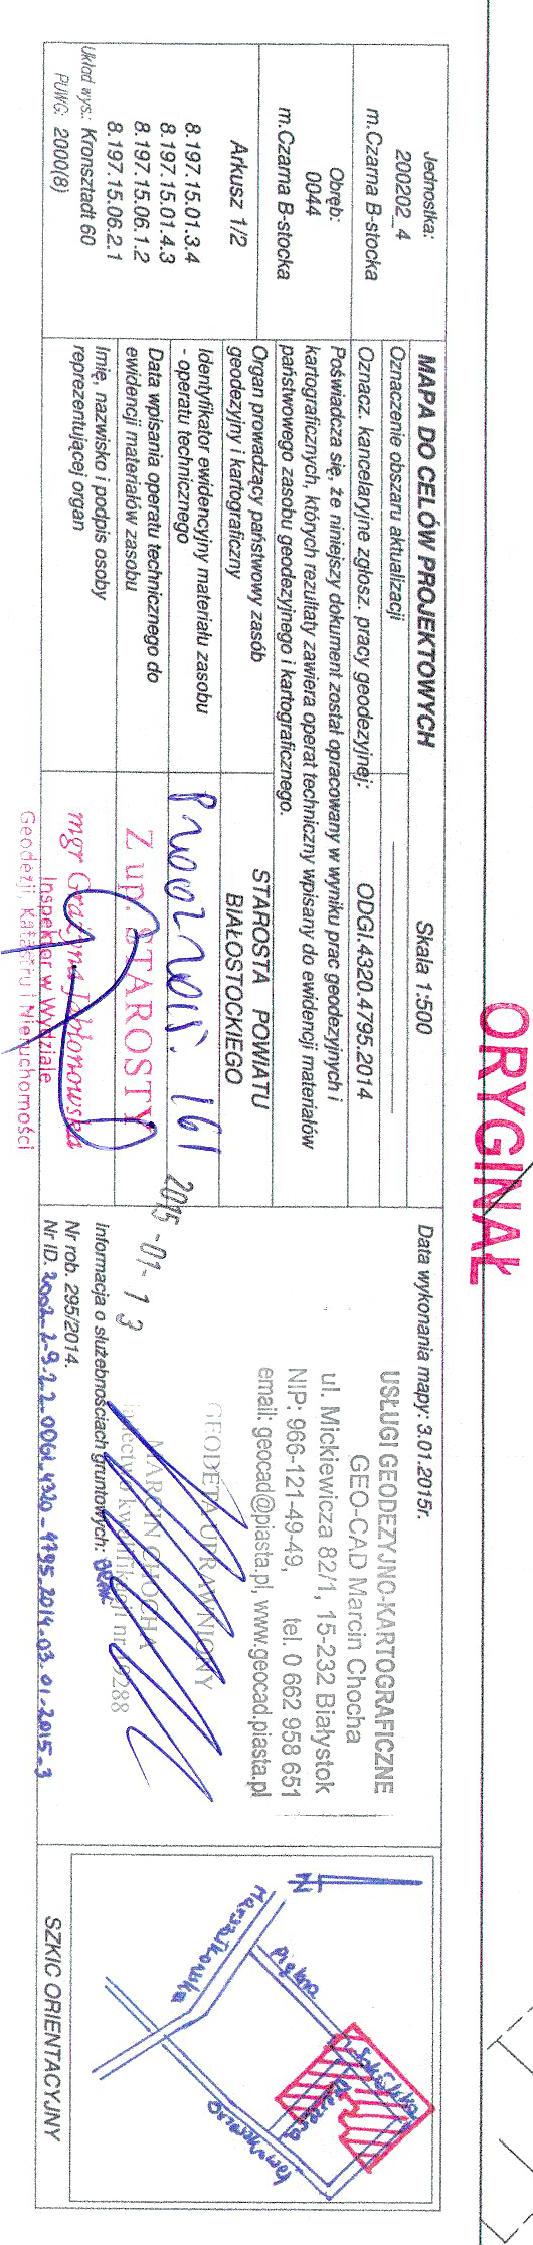 ORYGINAŁ
Jednostka:
200202_4
m.Czarna B-stocka
Obręb:
0044
m.Czarna B-stocka
Arkusz 1/2
8.197.15.01.3.4
8.197.15.01.4.3
8.197.15.06.1.2
8.197.15.06.2.1
Układ wys.: Kronsztadt 60
PUWG: 2000(8)
MAPA DO CELÓW PROJEKTOWYCH Skala 1:500
Oznaczenie obszaru aktualizacji
Oznacz. kancelaryjne zgłosz. pracy geodezyjnej: ODGI.4320.4795.2014
Poświadcza się, że niniejszy dokument został opracowany w wyniku prac geodezyjnych i
kartograficznych, których rezultaty zawiera operat techniczny wpisany do ewidencji materiałów
państwowego zasobu geodezyjnego i kartograficznego.
Organ prowadzący państwowy zasób
geodezyjny i kartograficzny
STAROSTA POWIATU
BIAŁOSTOCKIEGO
Identyfikator ewidencyjny materiału zasobu
- operatu technicznego
161
Data wpisania operatu technicznego do
ewidencji materiałów zasobu
2015 -01- 13
Imię, nazwisko i podpis osoby
reprezentującej organ
Z up. STAROSTY
mgr Grażyna Jabłonowska
Inspektor w Wydziale
Geodezji, Katastru i Nieruchomości
Data wykonania mapy: 3.01.2015r.
USŁUGI GEODEZYJNO-KARTOGRAFICZNE
GEO-CAD Marcin Chocha
ul. Mickiewicza 82/1, 15-232 Białystok
NIP: 966-121-49-49, tel. 0 662 958 651
email: geocad@piasta.pl, www.geocad.piasta.pl
GEODETA UPRAWNIONY
MARCIN CHOCHA
Informacja o służebnościach gruntowych: BRAK
Nr rob. 295/2014.
Nr ID.
N
Marszałkowska
Piękna
SZKIC ORIENTACYJNY